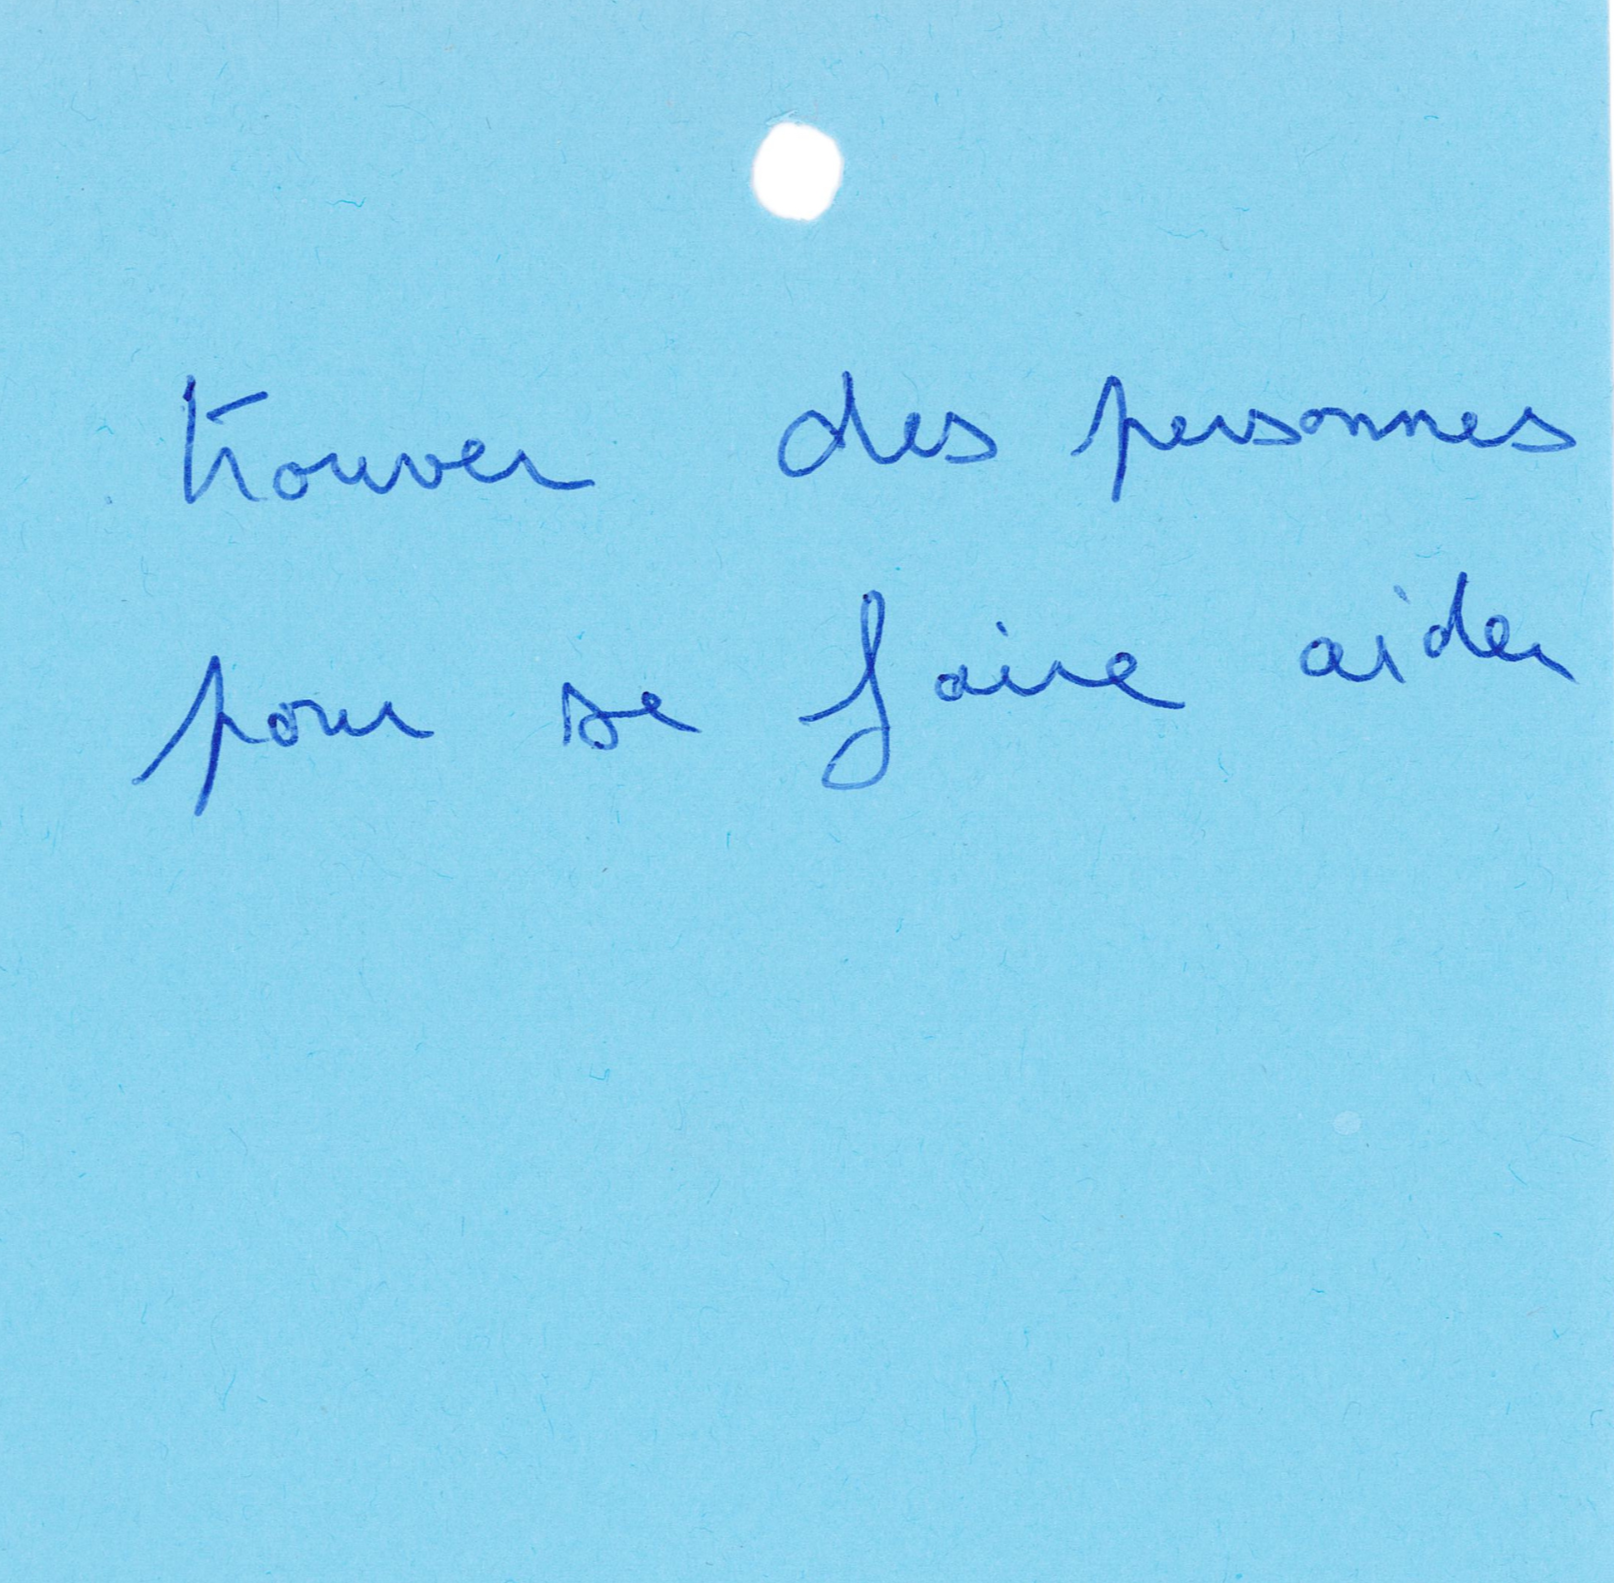 trouver des personnes
pour se faire aider